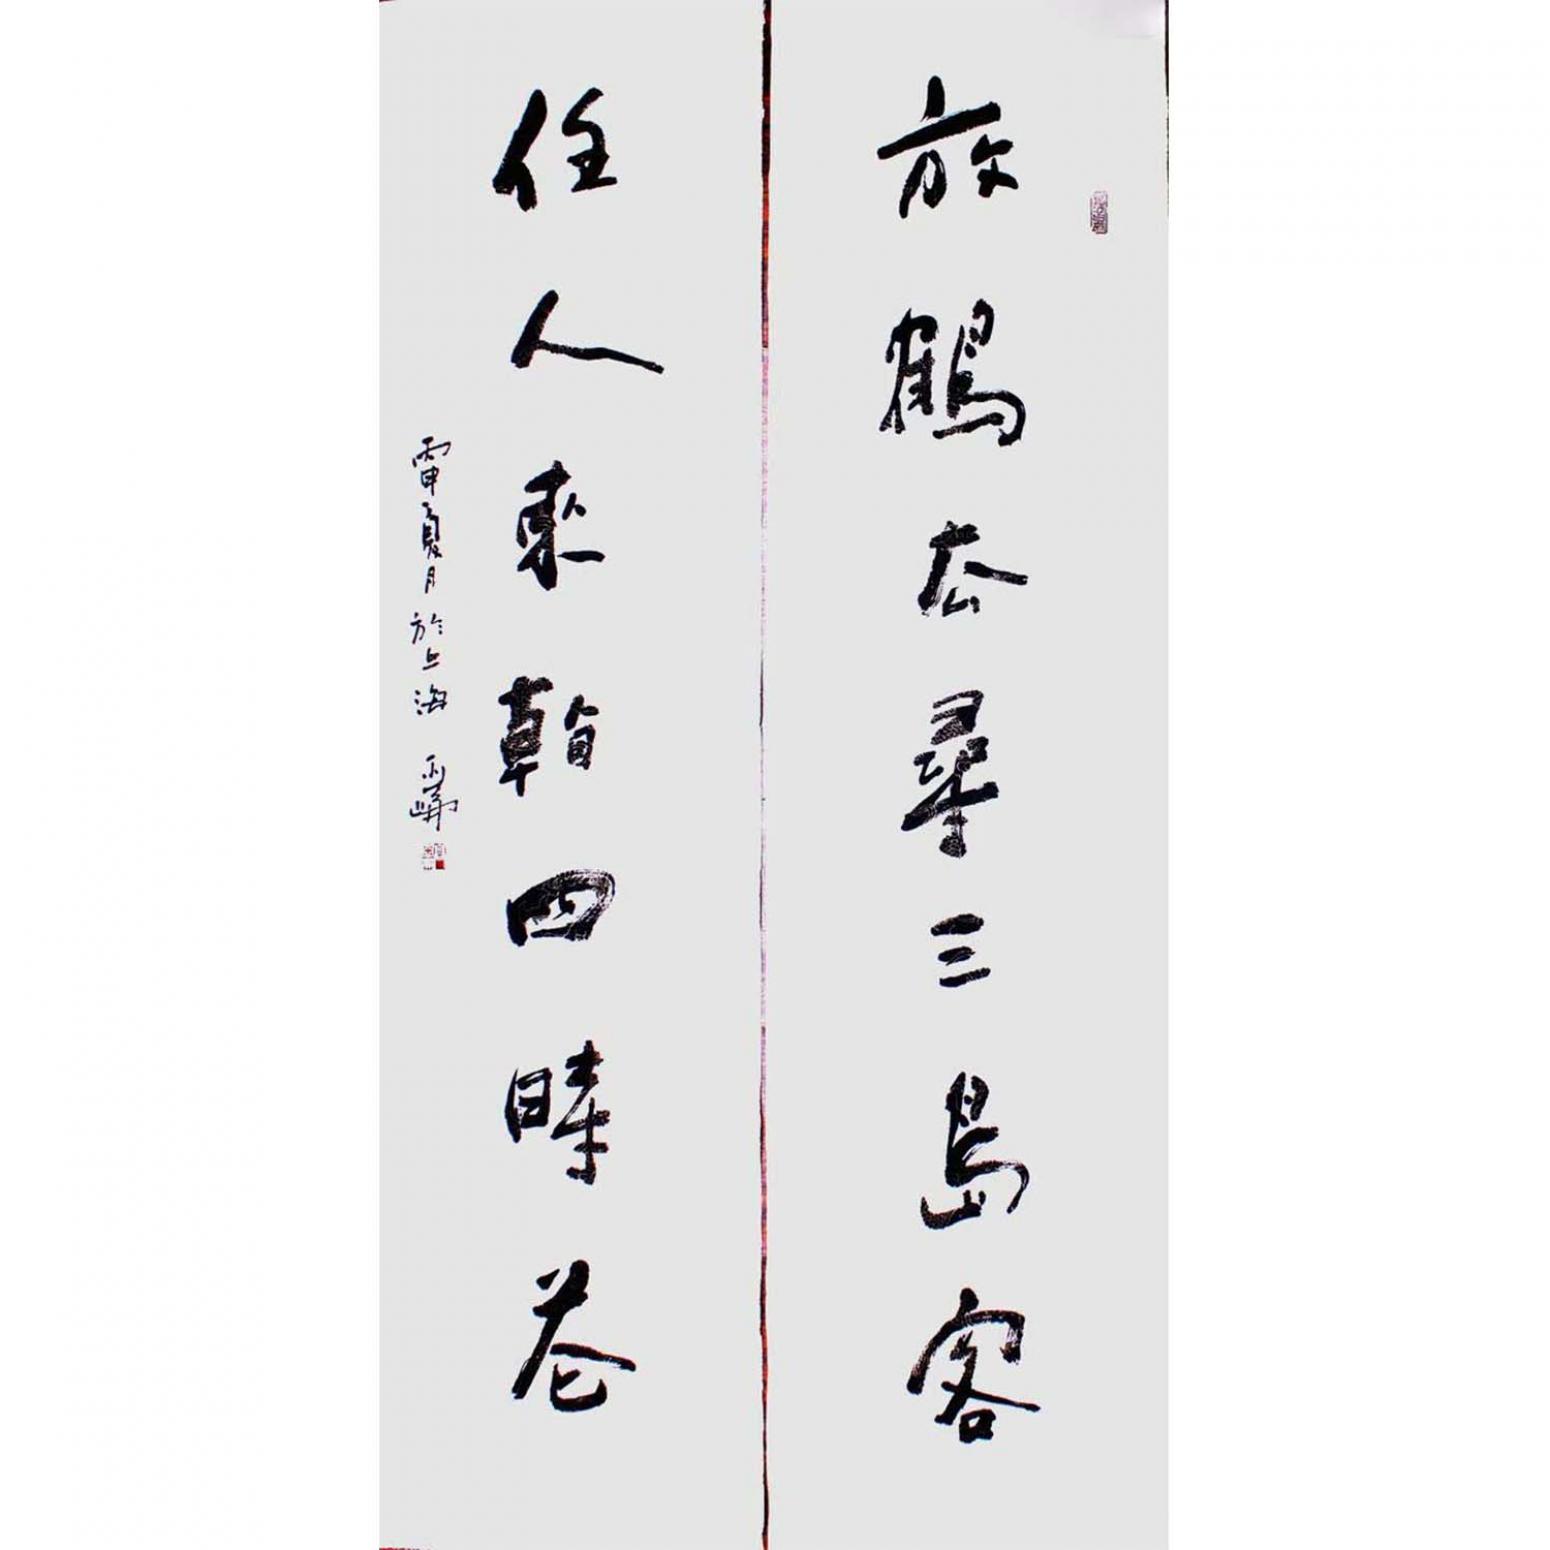 放鶴去尋三島客
任人來看四時花
丙申夏月於上海